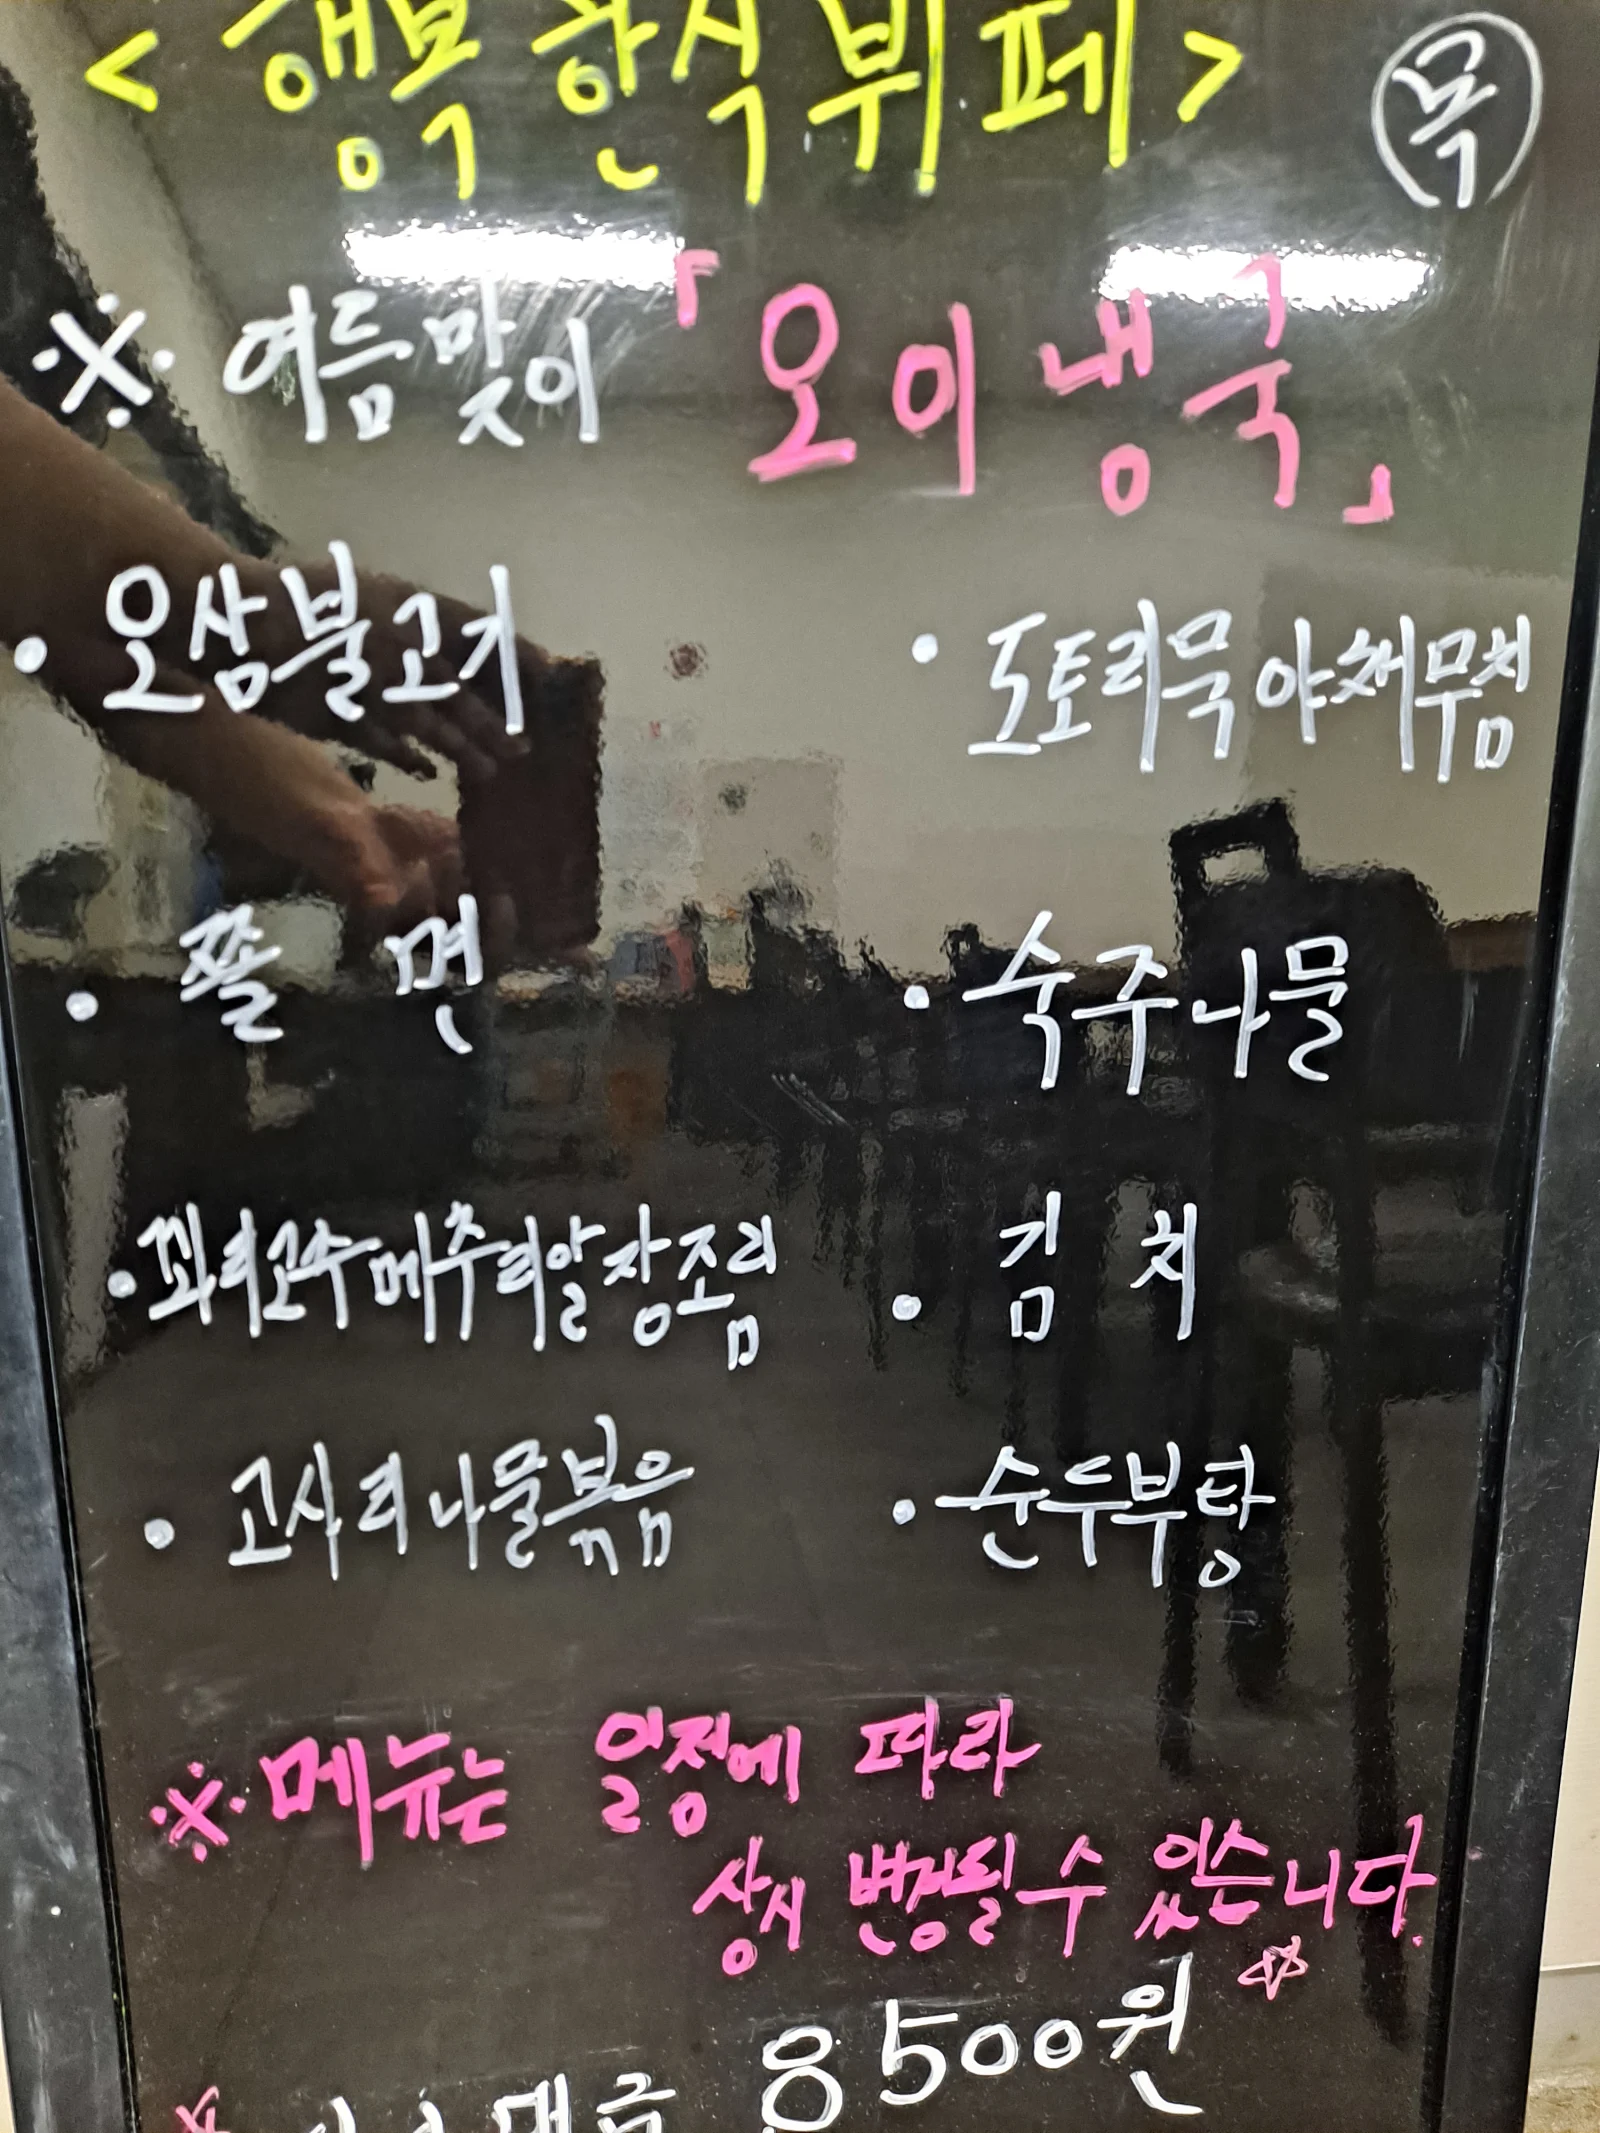 < 행복 한식 뷔페 > 목
※ 여름맞이 「오이냉국」
• 오삼불고기
• 도토리묵야채무침
• 쫄면
• 숙주나물
• 꽈리고추메추리알장조림
• 김치
• 고사리나물볶음
• 순두부탕
※ 메뉴는 일정에 따라
상시 변경될 수 있습니다. ☆
8500원